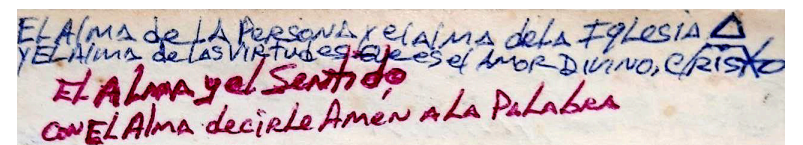 EL Alma de LA Persona y el alma de la Iglesia
Y EL Alma de las Virtudes que es el Amor Divino, CRISTO
El Alma y el Sentido,
con El Alma decirle Amén a La Palabra